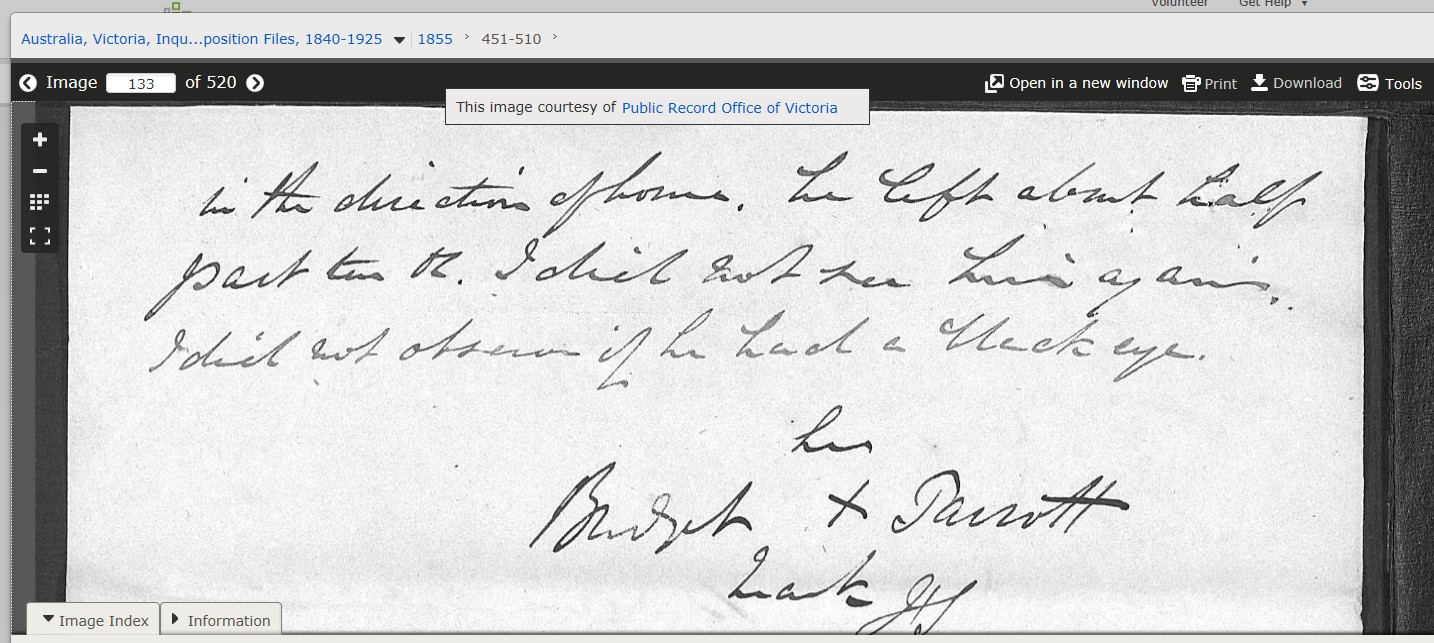 Volunteer Get Help
Australia, Victoria, Inqu...position Files, 1840-1925 1855 451-510
Image 133 of 520 Open in a new window Print Download Tools
This image courtesy of Public Record Office of Victoria
in the direction of home. he left about half
past ten Oc. I did not see him again.
I did not observe if he had a black eye.
her
Bridget X Parrott
mark
Image Index Information